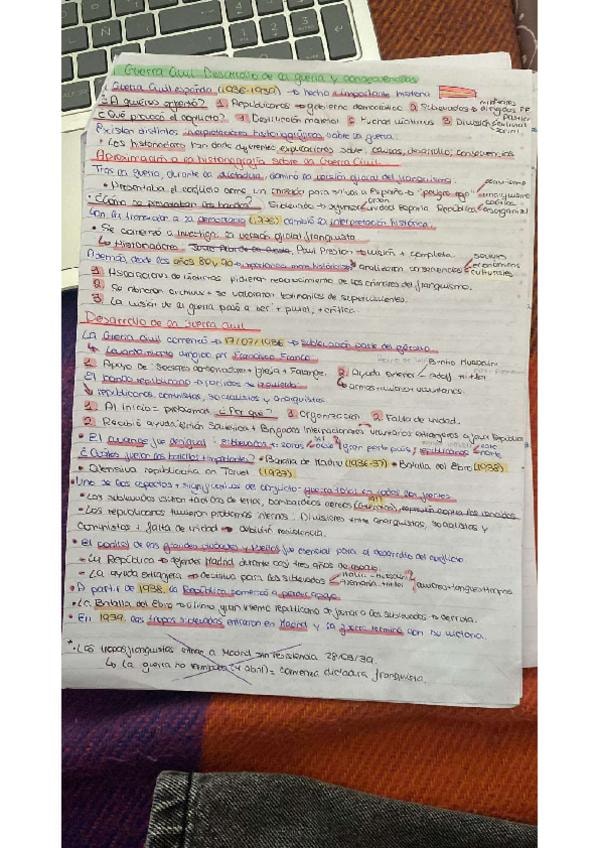 Guerra Civil: Desarrollo de la guerra y consecuencias
Guerra Civil española (1936-1939) → hecho + importante historia
¿A quiénes enfrentó? 1 Republicanos → gobierno democrático 2 Sublevados → dirigidos
¿Qué provocó el conflicto? 1 Destrucción material 2 Muchas víctimas 3 División social
Existen distintas interpretaciones historiográficas sobre la guerra.
• Los historiadores han dado diferentes explicaciones sobre: causas, desarrollo, consecuencias
Aproximación a la historiografía sobre la Guerra Civil
Tras la guerra, durante la dictadura, dominó la versión oficial del franquismo.
• Presentaba el conflicto como una cruzada para salvar a España → "peligro rojo" comunismo anarquismo
• ¿Cómo se presentaban los bandos? Sublevados → orden unidad España República
Con la transición a la democracia (1975) cambió la interpretación histórica.
• Se comenzó a investigar la versión oficial franquista
↳ Historiadores Paul Preston → visión + completa.
Además, desde los años 80 y 90 → analizaron consecuencias sociales económicas culturales
1 Asociaciones de víctimas pidieron reconocimiento de los crímenes del franquismo.
2 Se abrieron archivos + se valoraron testimonios de supervivientes.
3 La visión de la guerra pasó a ser + plural, + crítica.
Desarrollo de la Guerra Civil
La Guerra comenzó → 17/07/1936 → sublevación parte del ejército
↳ Levantamiento dirigido por Francisco Franco
1 Apoyo de: Sectores conservadores + Iglesia + Falange. 2 Ayuda exterior Benito Mussolini Adolf Hitler
El bando republicano → partidos de izquierda
↳ republicanos, comunistas, socialistas y anarquistas.
1 Al inicio → problemas ¿Por qué? 1 Organización 2 Falta de unidad.
2 Recibió ayuda: Unión Soviética + Brigadas Internacionales voluntarios extranjeros a favor República
• El avance fue desigual: Sublevados → zonas sur oeste gran parte país; republicanos este norte
¿Cuáles fueron las batallas + importantes? • Batalla de Madrid (1936-37) • Batalla del Ebro (1938)
• Ofensiva republicana en Teruel (1937)
• Uno de los aspectos + significativos del conflicto → guerra total en todos los frentes
• Los sublevados usaron tácticas de terror, bombardeos aéreos represión contra los
• Los republicanos tuvieron problemas internos: Divisiones entre anarquistas, socialistas y
comunistas + falta de unidad → debilitó resistencia.
• El control de las grandes ciudades y pueblos fue esencial para el desarrollo del conflicto
- La República → defender Madrid durante casi tres años de asedio.
- La ayuda extranjera → decisiva para los sublevados Italia - Mussolini Alemania - Hitler aviones + tanques + tropas
• A partir de 1938, la República comenzó a perder apoyo
• La Batalla del Ebro → último gran intento republicano de frenar a los sublevados → derrota.
• En 1939, las tropas sublevadas entraron en Madrid y la guerra terminó con su victoria.
* • Las tropas franquistas entran a Madrid sin resistencia 28/03/39.
↳ La guerra no termina (1 abril) = comienza dictadura franquista.